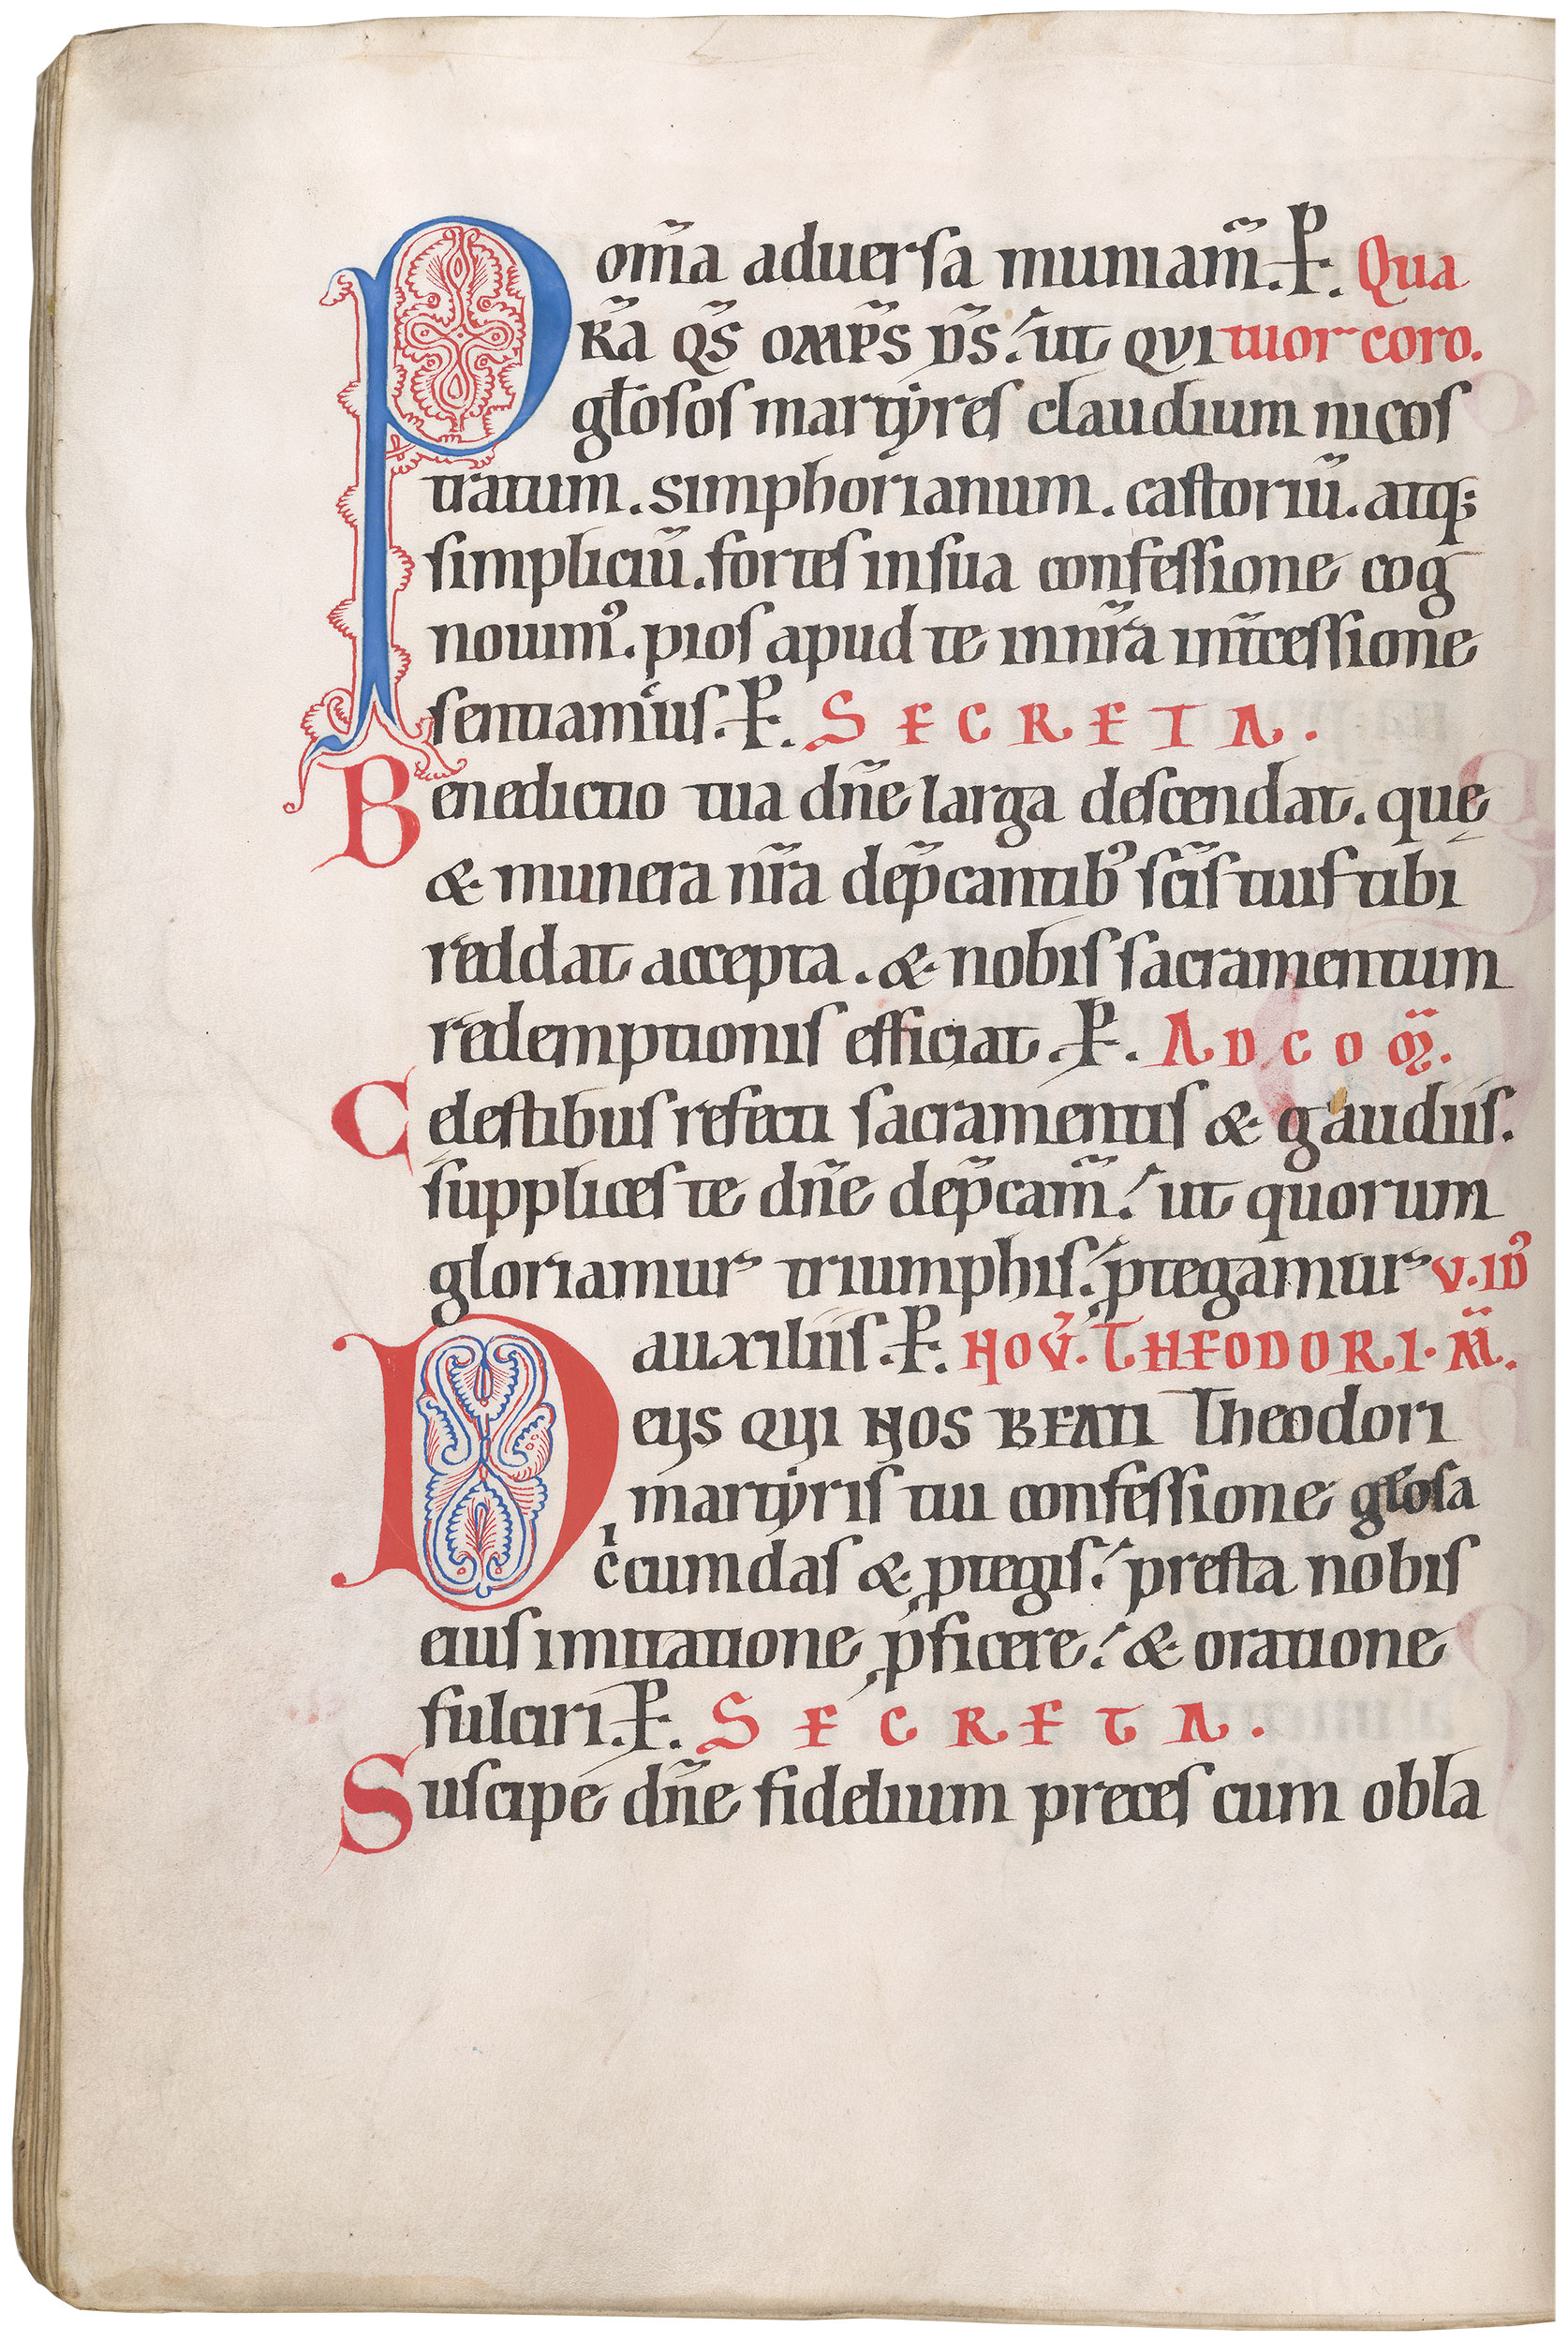 om̃a aduersa muniam̃. P. Qua
PR̃A QS̃ OMP̃S D̃S. ut QUI tuor coro.
głosos martyres claudium nicos
tratum. simphorianum. castoriũ. atq;
simpliciũ. fortes in sua confessione cog
nouim᾿. pios apud te in nr̃a int̃cessione
sentiamus. P. SECRETA.
Benedictio tua dñe larga descendat. quę
& munera nr̃a dep̃cantib᾿ sc̃is tuis tibi
reddat accepta. & nobis sacramentum
redemptionis efficiat. P. AD COM̃.
Celestibus refecti sacramentis & gaudiis.
supplices te dñe dep̃cam̃. ut quorum
gloriamur triumphis. ꝓtegamur V. ID᾿
auxiliis. P. NOṼ. THEODORI. M̃.
DEUS QUI NOS BEATI Theodori
martyris tui confessione głosa
c̊cumdas & ꝓtegis. presta nobis
eius imitatione ꝓficere. & oratione
fulciri. P. SECRETA.
Suscipe dñe fidelium preces cum obla